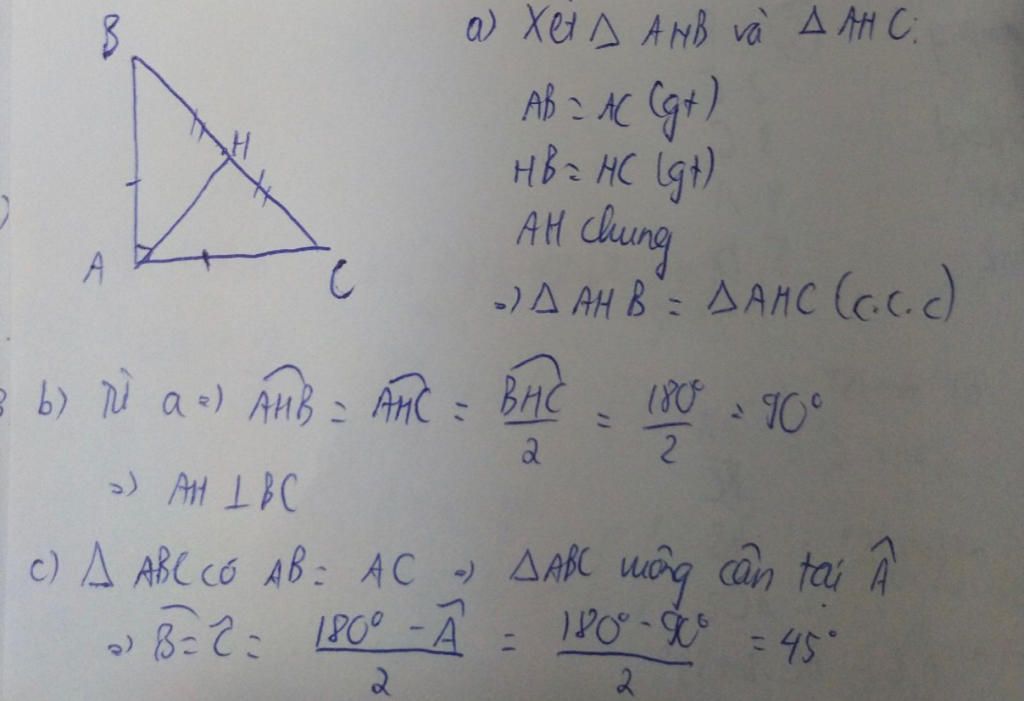 B
H
A
C
a) Xét Δ AHB và Δ AHC:
AB = AC (gt)
HB = HC (gt)
AH chung
=) Δ AHB = Δ AHC (c.c.c)
b) Từ a =) $\widehat{AHB}$ = $\widehat{AHC}$ = $\frac{\widehat{BHC}}{2}$ = $\frac{180°}{2}$ = 90°
=) AH ⊥ BC
c) Δ ABC có AB = AC =) ΔABC vuông cân tại $\widehat{A}$
=) $\widehat{B}$ = $\widehat{C}$ = $\frac{180° - \widehat{A}}{2}$ = $\frac{180° - 90°}{2}$ = 45°